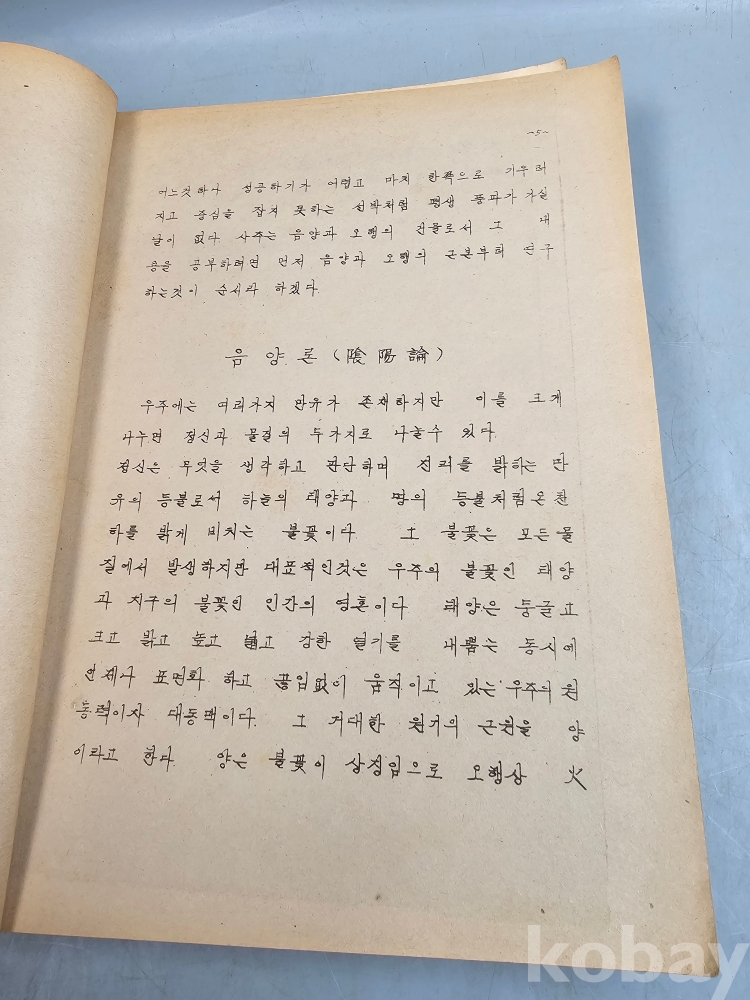 ~5~
어느것하나 성공하기가 어렵고 마치 한쪽으로 기우러
지고 중심을 잡지 못하는 선박처럼 평생 풍파가 가실
날이 없다 사주는 음양과 오행의 건물로서 그 내
용을 공부하려면 먼저 음양과 오행의 근본부터 연구
하는것이 순서라 하겠다.
음양론 (陰陽論)
우주에는 여러가지 만유가 존재하지만 이를 크게
나누면 정신과 물질의 두가지로 나눌수 있다.
정신은 무엇을 생각하고 판단하며 진리를 밝히는 만
유의 등불로서 하늘의 태양과 땅의 등불처럼 온 천
하를 밝게 비치는 불꽃이다 그 불꽃은 모든 물
질에서 발생하지만 대표적인것은 우주의 불꽃인 태양
과 지구의 불꽃인 인간의 영혼이다 태양은 둥글고
크고 밝고 높고 넓고 강한 열기를 내뿜는 동시에
언제나 표면화 하고 끊임없이 움직이고 있는 우주의 원
동력이자 대동맥이다. 그 거대한 원기의 근원을 양
이라고 한다. 양은 불꽃이 상징임으로 오행상 火
kobay